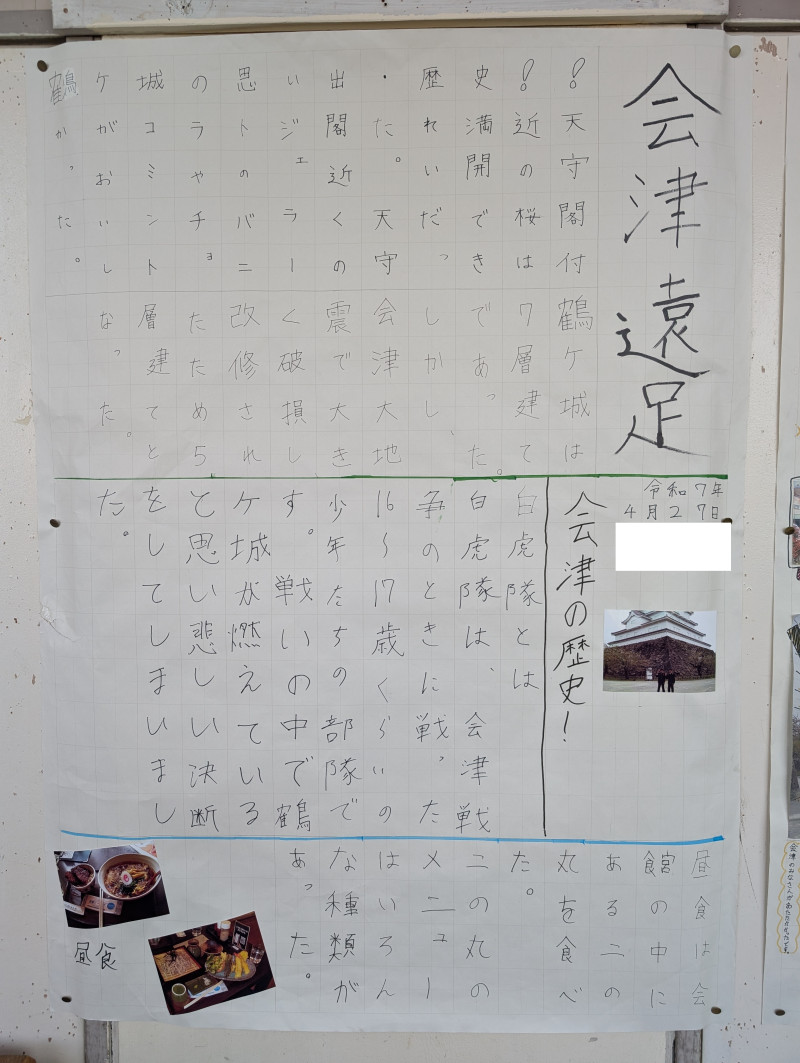 会津遠足
鶴ケ城の思い出・歴史！！
天守閣付
近の桜は
満開でき
れいだっ
た。天守
閣近くの
ジェラー
トのバニ
ラャチョ
コミント
がおいし
かった。
鶴ケ城は
7層建て
であった。
しかし、
会津大地
震で大き
く破損し
改修され
たため5
層建てと
なった。
令和7年
4月27日
会津の歴史！
白虎隊とは
白虎隊は、会津戦
争のときに戦った
16〜17歳くらいの
少年たちの部隊で
す。戦いの中で鶴
ケ城が燃えている
と思い悲しい決断
をしてしまいまし
た。
昼食は会
館の中に
ある二の
丸を食べ
た。
二の丸の
メニュー
はいろん
な種類が
あった。
昼食